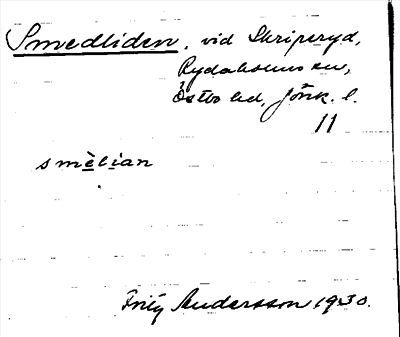 Smedliden, vid Skriperyd,
Rydaholms sn,
Östbo hd, Jönk. l.
11
smèlian
Fritz Andersson 1930.